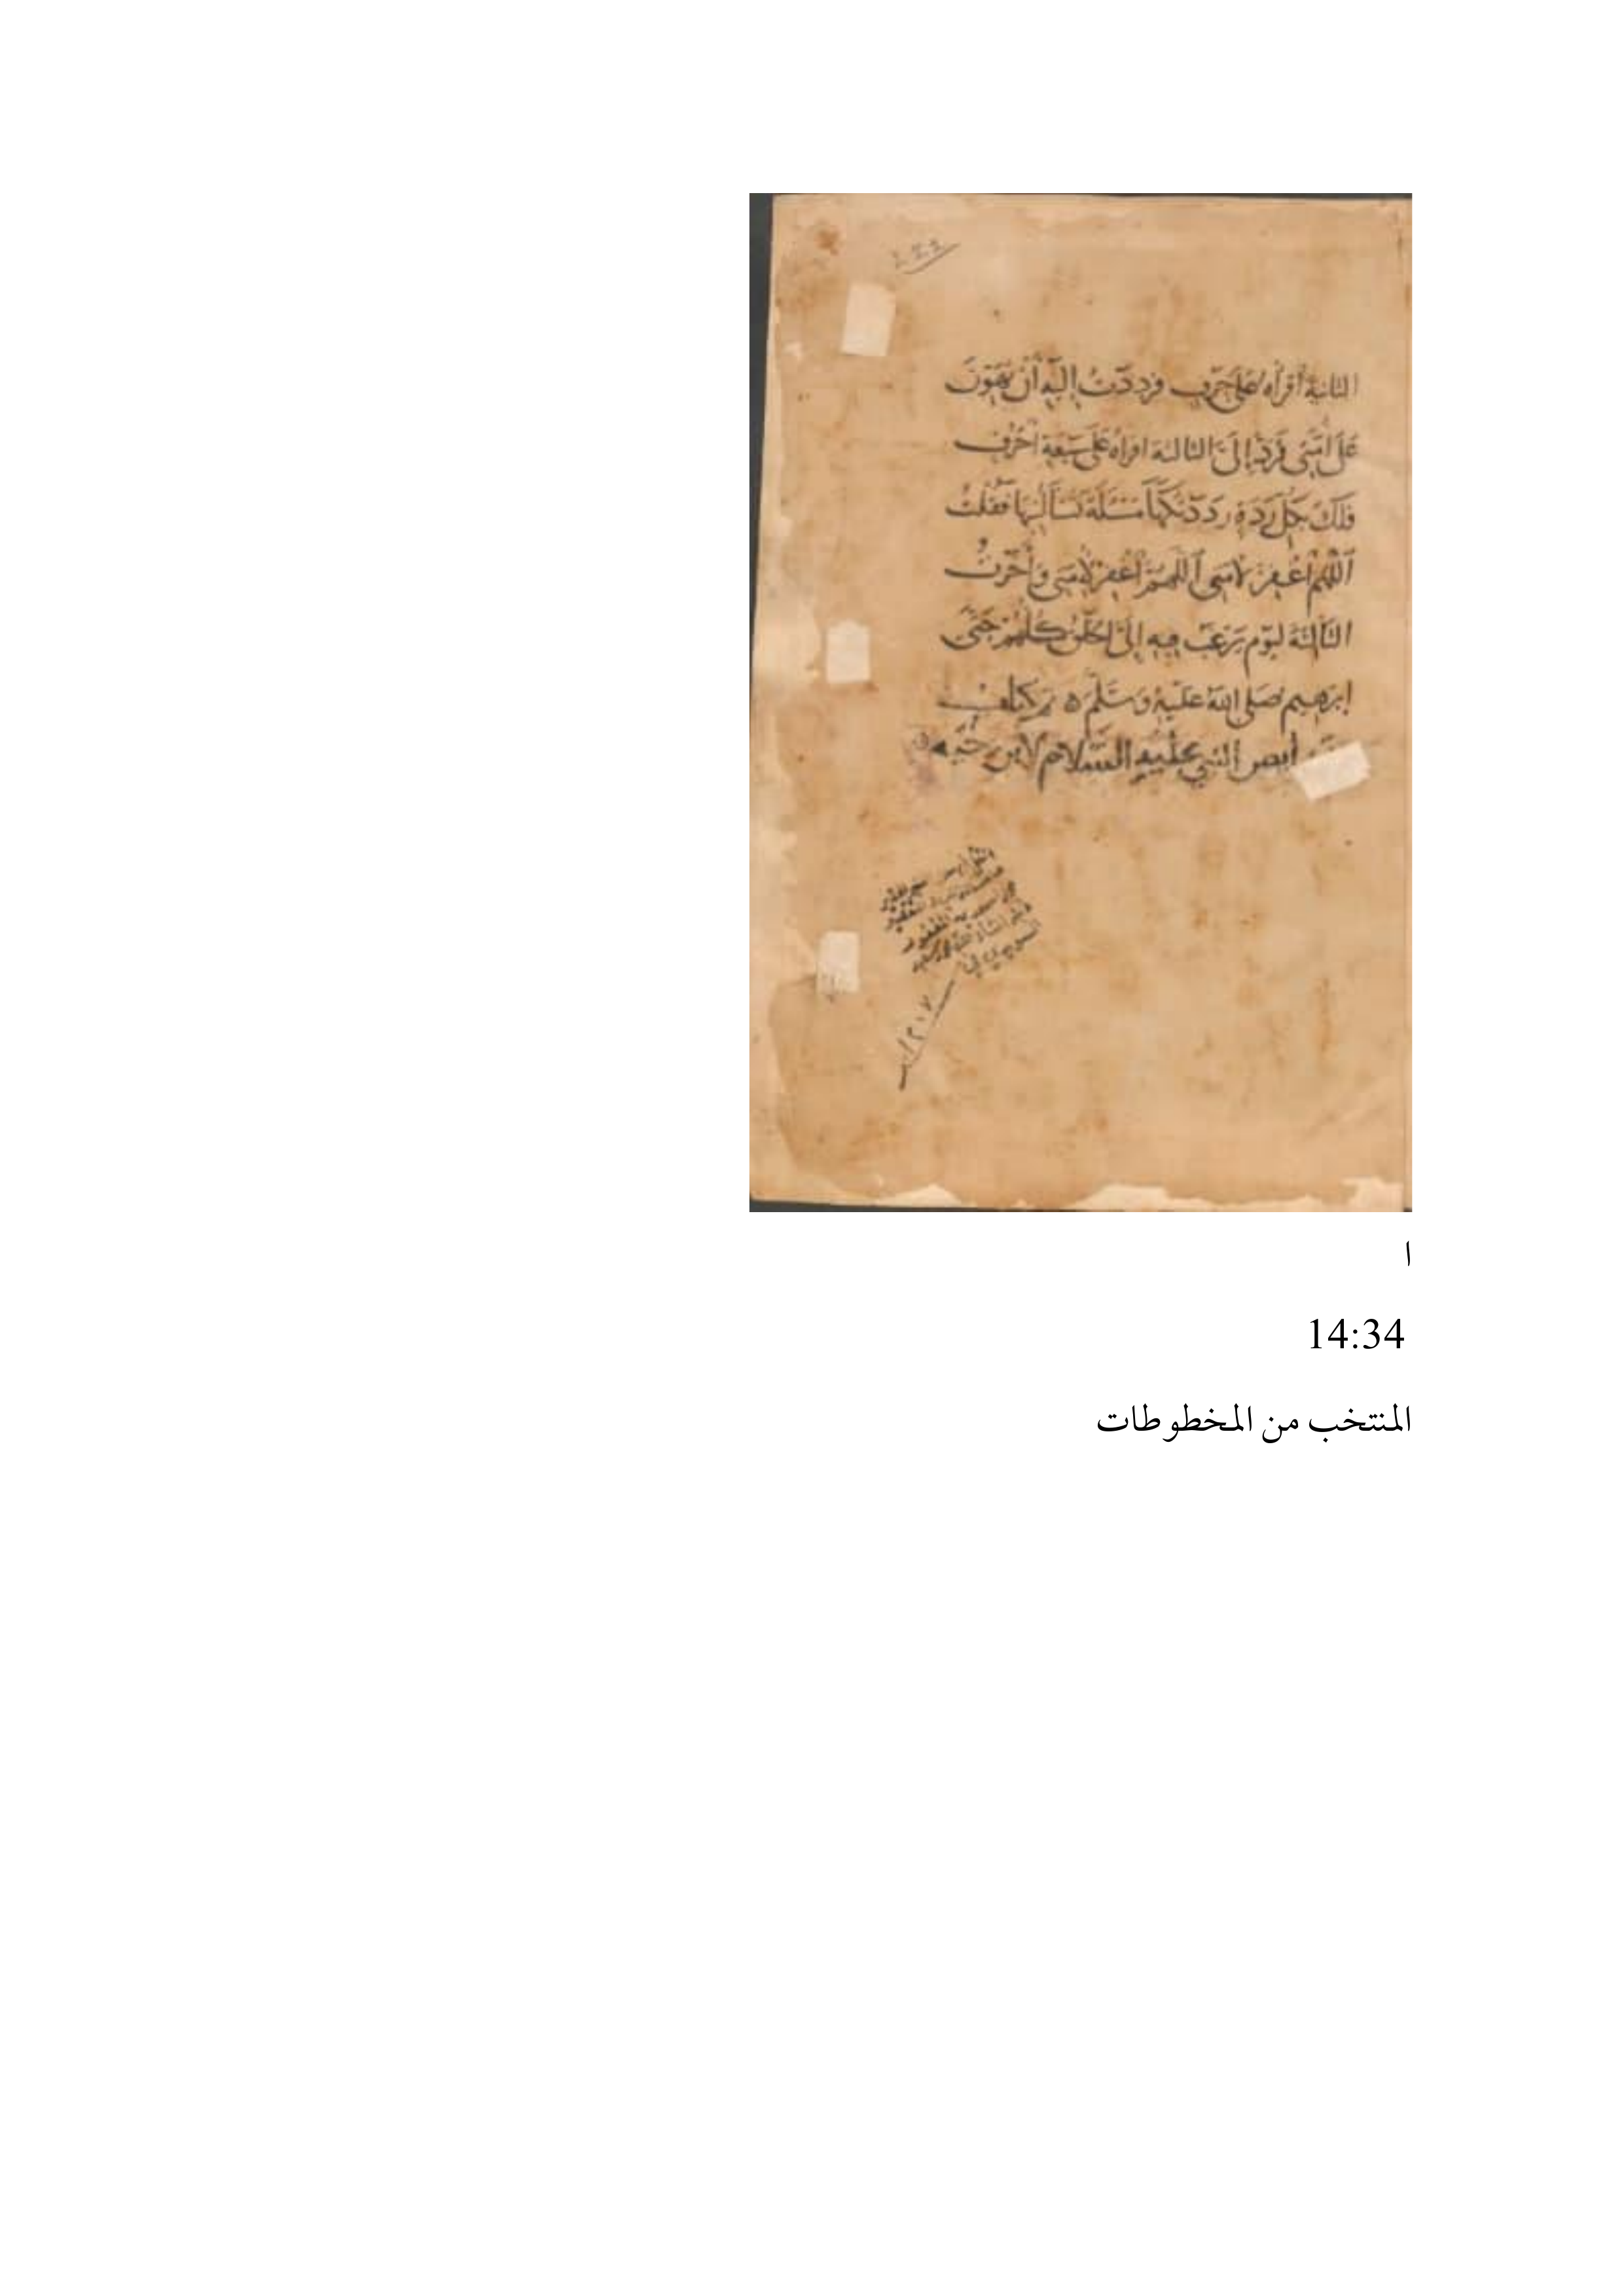 الثانية أقرأه على حرف فرددت إليه أن يهون
على امتي فرد إلى الثالثة اقراه على سبعة أحرف
فلك بكل ردة رددتكها مسئلة تسألنيها فقلت
اللهم اغفر لامتي اللهم اغفر لامتي وأخرت
الثالثة ليوم يرغب فيه إلى الخلق كلهم حتى
إبرهيم صلى الله عليه وسلم ه تم كتاب
أبصر النبي عليه السلام لابن
١٢٠٧
ا
14:34
المنتخب من المخطوطات